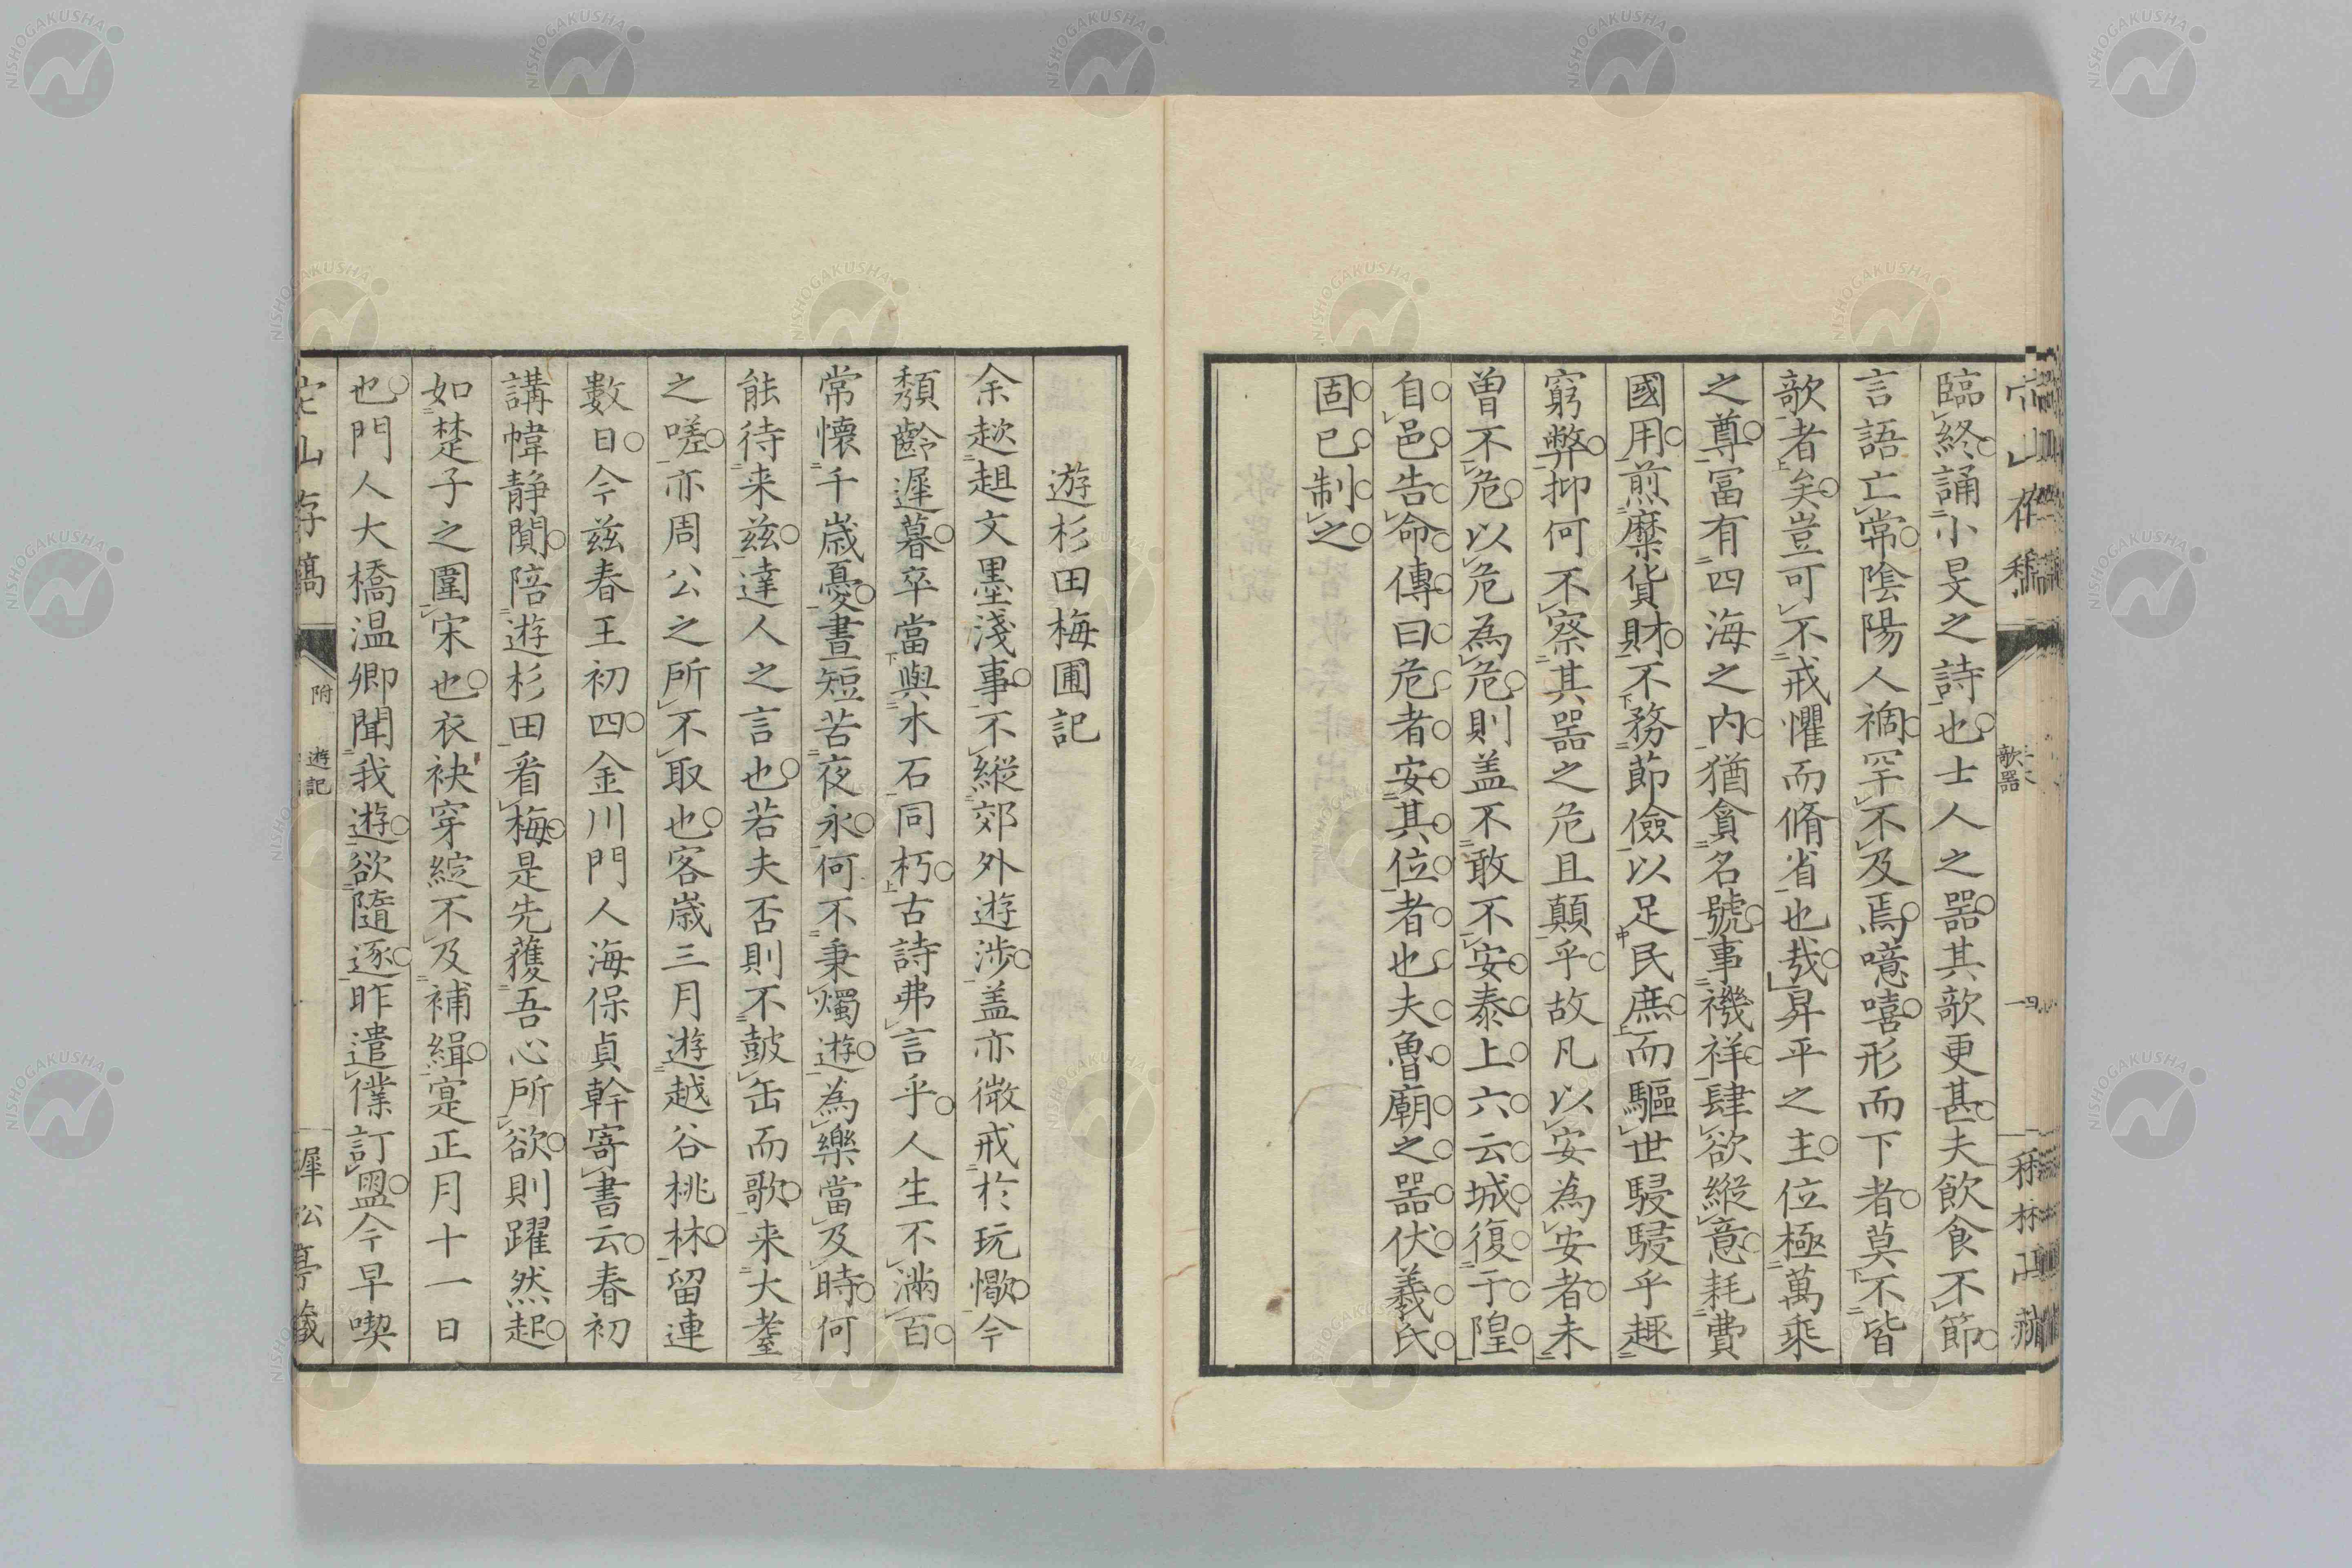 臨終誦小旻之詩也士人之器其欹更甚夫飲食不節
言語亡常陰陽人禍罕不及焉噫嘻形而下者莫不皆
欹者矣豈可不戒懼而脩省也哉昇平之主位極萬乘
之尊冨有四海之内猶貪名號事禨祥肆欲縱意耗費
國用煎糜貨財不務節儉以足民庶而驅世駸駸乎趣
窮弊抑何不察其器之危且顛乎故凡以安為安者未
曽不危以危為危則盖不敢不安泰上六云城復于隍
自邑告命傳曰危者安其位者也夫魯廟之器伏羲氏
固已制之
欹器
遊杉田梅圃記
余趑趄文墨淺事不縱郊外遊涉盖亦微戒於玩愒今
頽齡遲暮卒當與木石同朽古詩弗言乎人生不滿百
常懷千歳憂晝短苦夜永何不秉燭遊為樂當及時何
能待来兹達人之言也若夫否則不鼓缶而歌来大耋
之嗟亦周公之所不取也客歳三月遊越谷桃林留連
數日今兹春王初四金川門人海保貞幹寄書云春初
講幃静閴陪遊杉田看梅是先獲吾心所欲則躍然起
如楚子之圍宋也衣袂穿綻不及補緝寔正月十一日
也門人大橋温卿聞我遊欲隨逐昨遣僕訂盟今早喫
宕山存稿
附
遊記
一
遲松亭藏
NISHOGAKUSHA